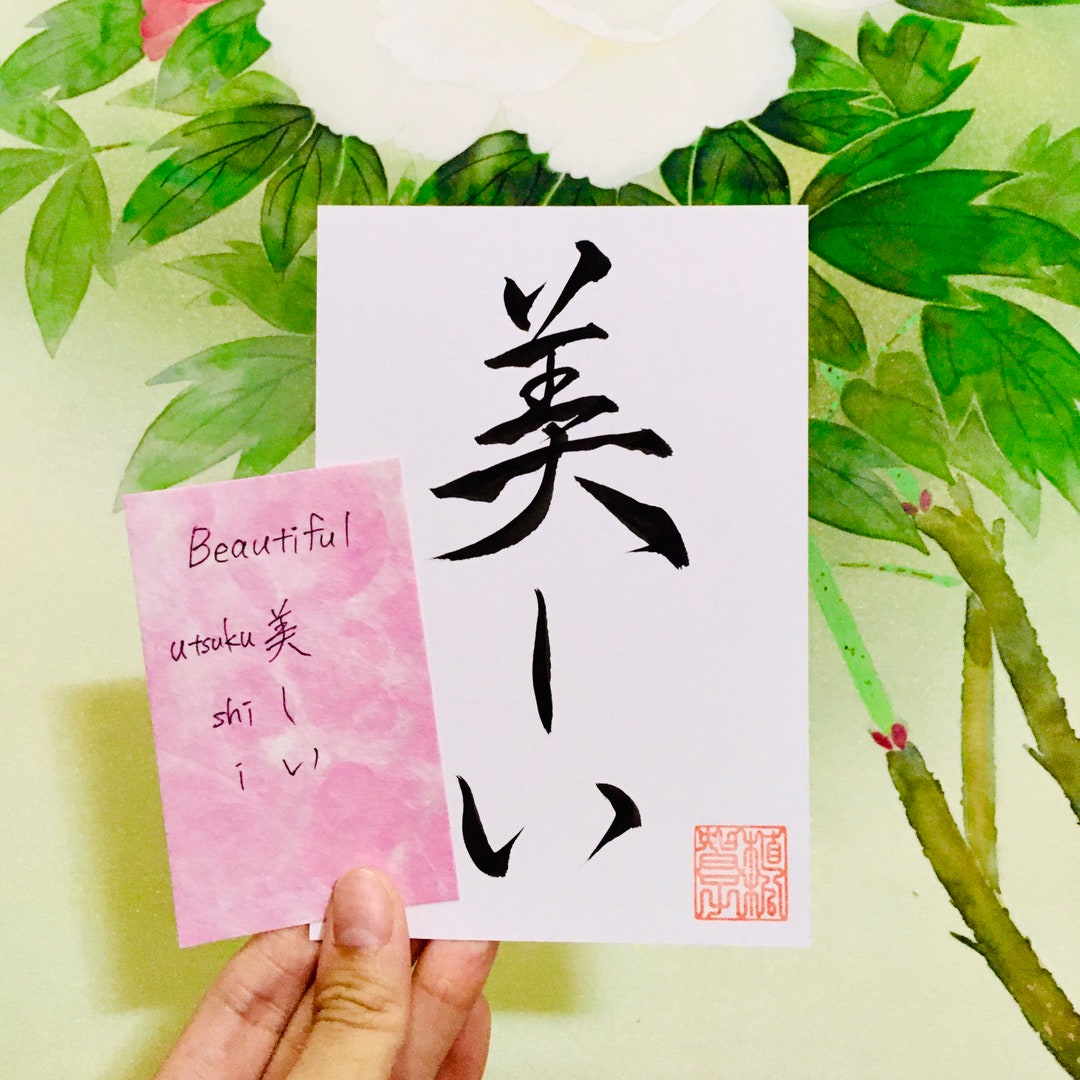 Beautiful
utsuku 美
shi し
i い
美
し
い